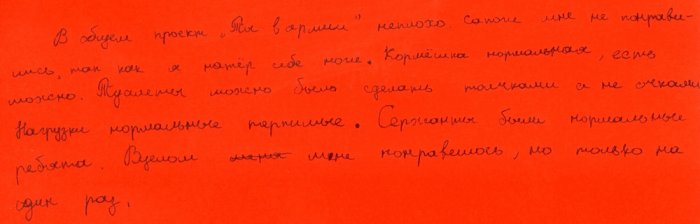 В общем проект „Ты в армии" неплохо. сапоги мне не понрави-
лись, так как я натер себе ноги. Кормёшка нормальная, есть
можно. Туалеты можно было сделать толчками а не очками
Нагрузки нормальные терпимые. Сержанты были нормальные
ребята. Вцелом мне понравелось, но только на
один раз.